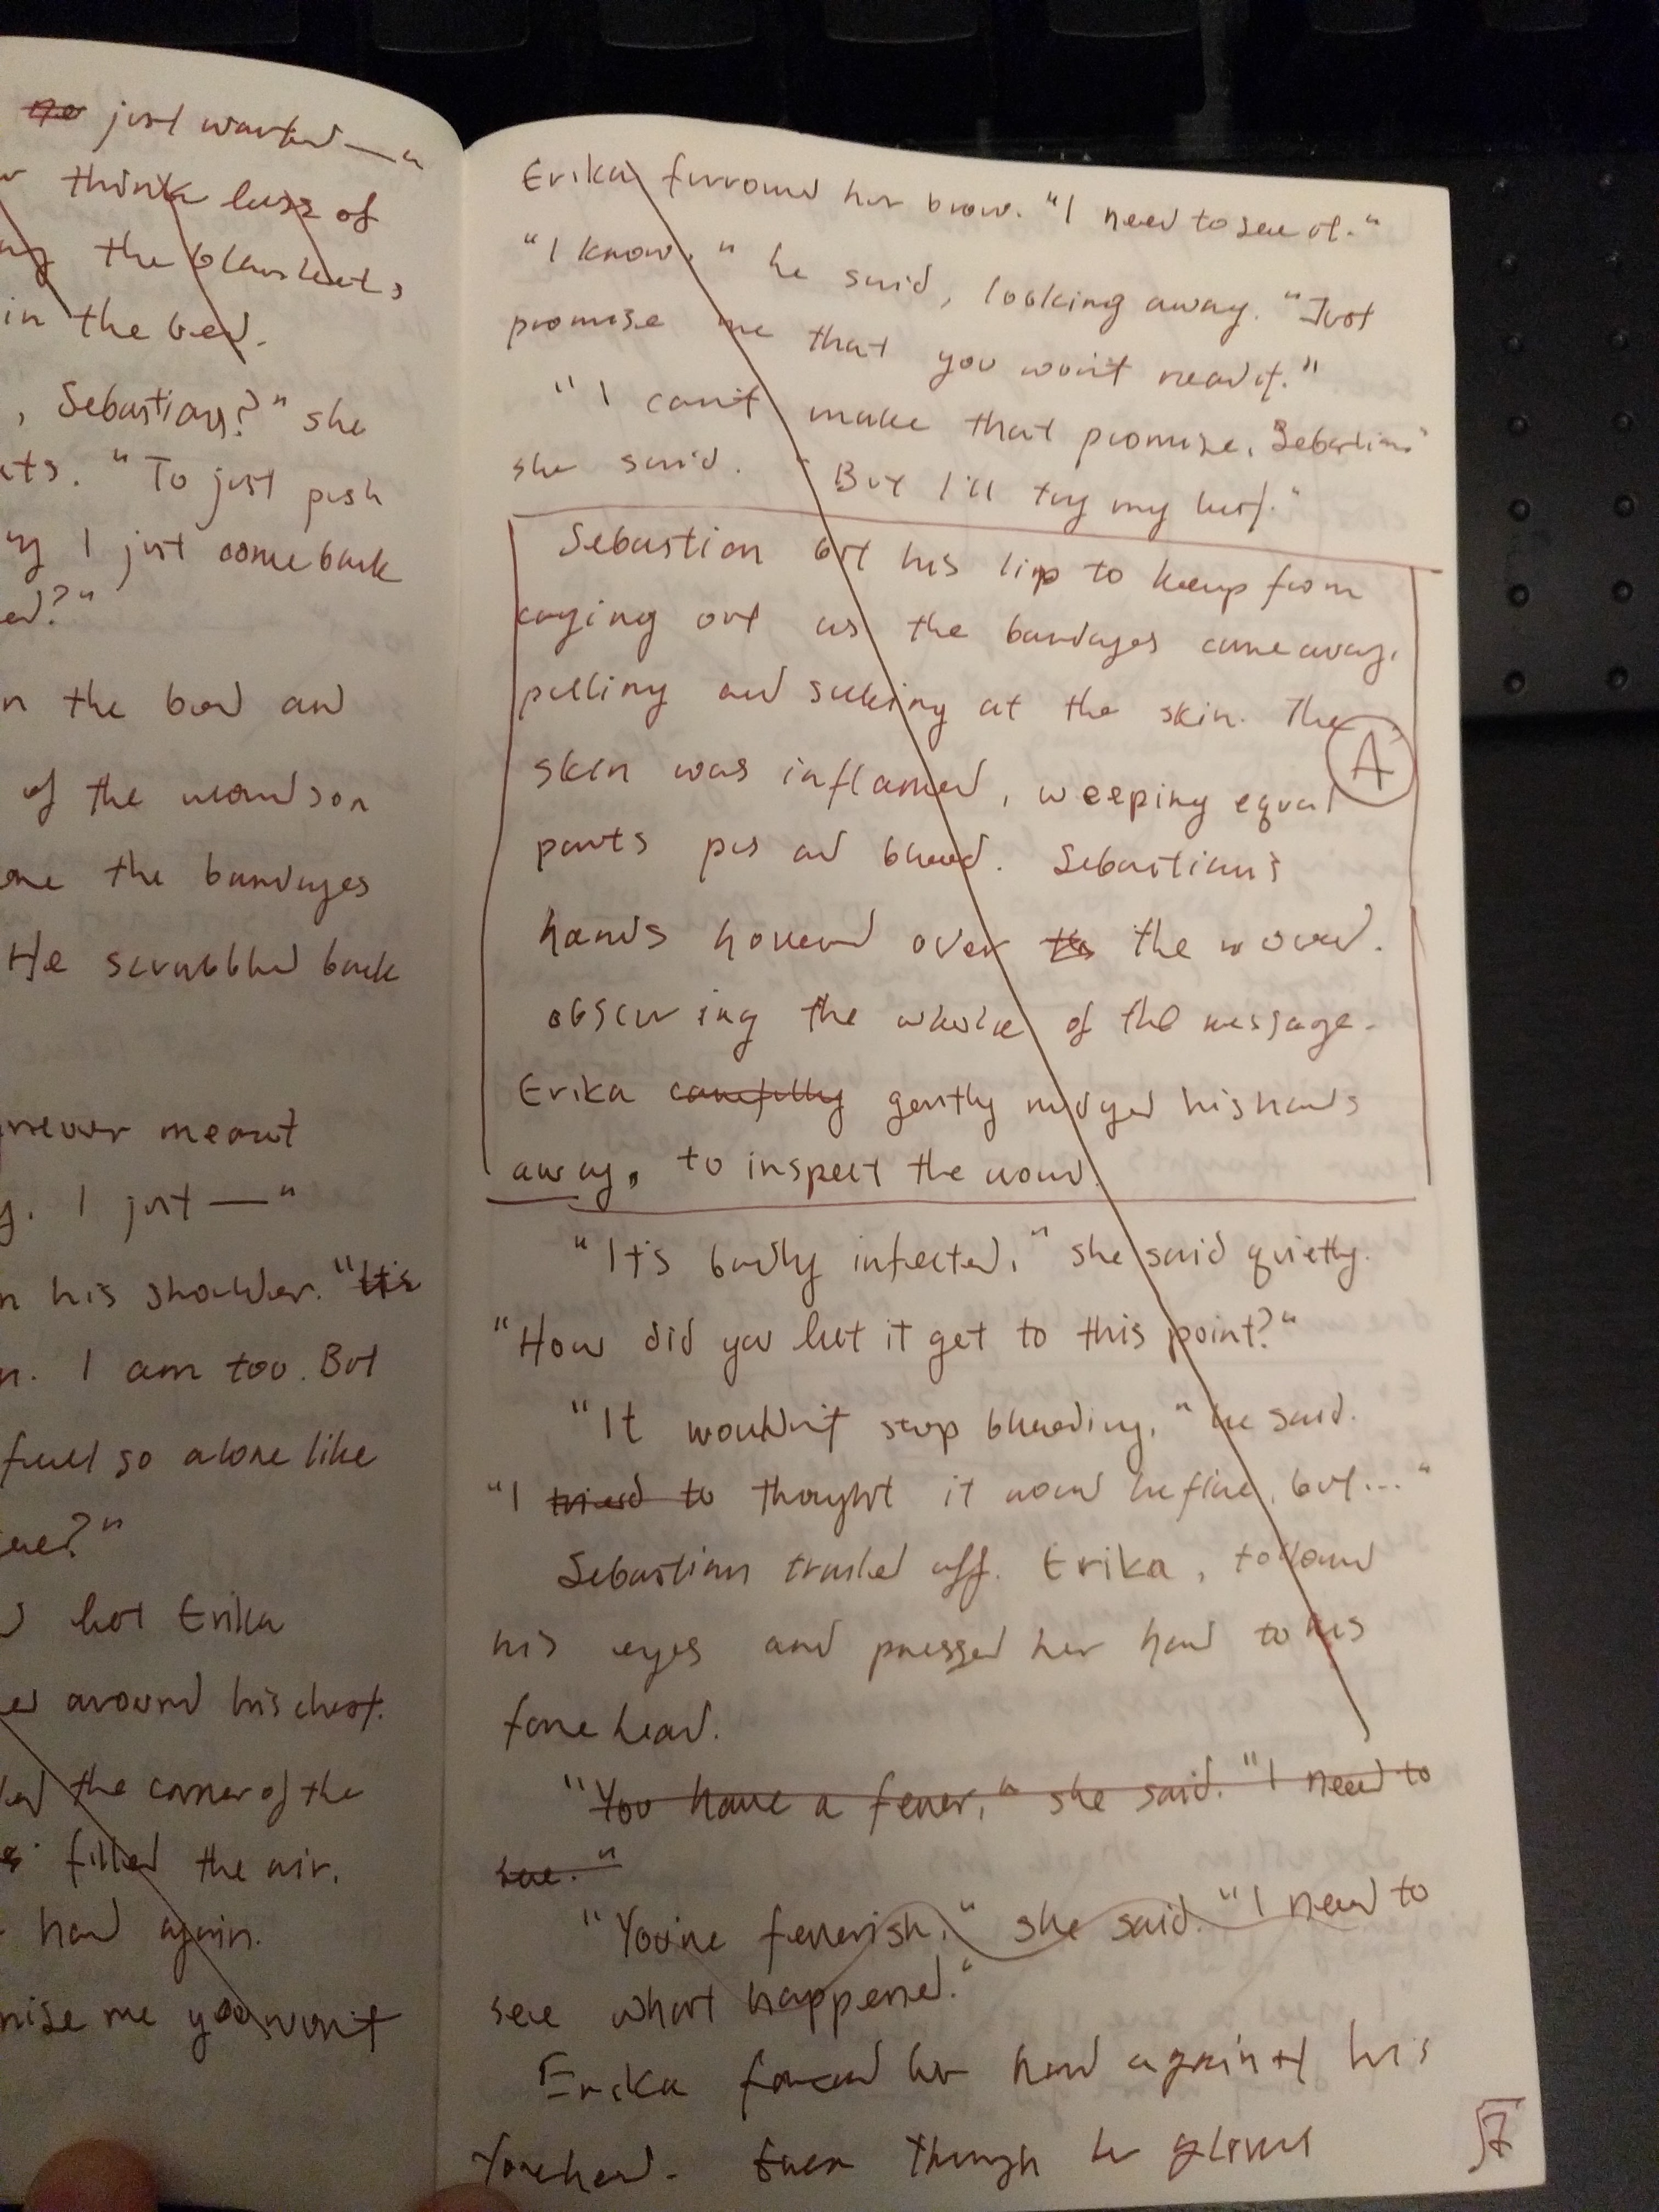 just wanted—"
think less of
the blankets,
in the bed.
, Sebastian?" she
"To just push
I just come back
?"
the bed and
of the wounds on
the bandages
He scrabbled back
never meant
. I just —"
his shoulder. "It's
. I am too. But
feel so alone like
me?"
hot Erika
around his chest.
the corner of the
filled the air.
hand again.
me you won't
Erika furrowed her brow. "I need to see it."
"I know," he said, looking away. "Just
promise me that you won't read it."
"I can't make that promise, Sebastian"
she said. "But I'll try my best."
Sebastian bit his lip to keep from
crying out as the bandages came away,
pulling and sucking at the skin. The
skin was inflamed, weeping equal
A
parts pus and blood. Sebastian's
hands hovered over the the wound.
obscuring the whole of the message.
Erika carefully gently nudged his hands
away, to inspect the wound.
"It's badly infected," she said quietly.
"How did you let it get to this point?"
"It wouldn't stop bleeding," he said.
"I tried to thought it would be fine, but..."
Sebastian trailed off. Erika, followed
his eyes and pressed her hand to his
forehead.
"You have a fever," she said. "I need to
see."
"You're feverish," she said. "I need to
see what happened."
Erika forced her hand against his
forehead. Even though he